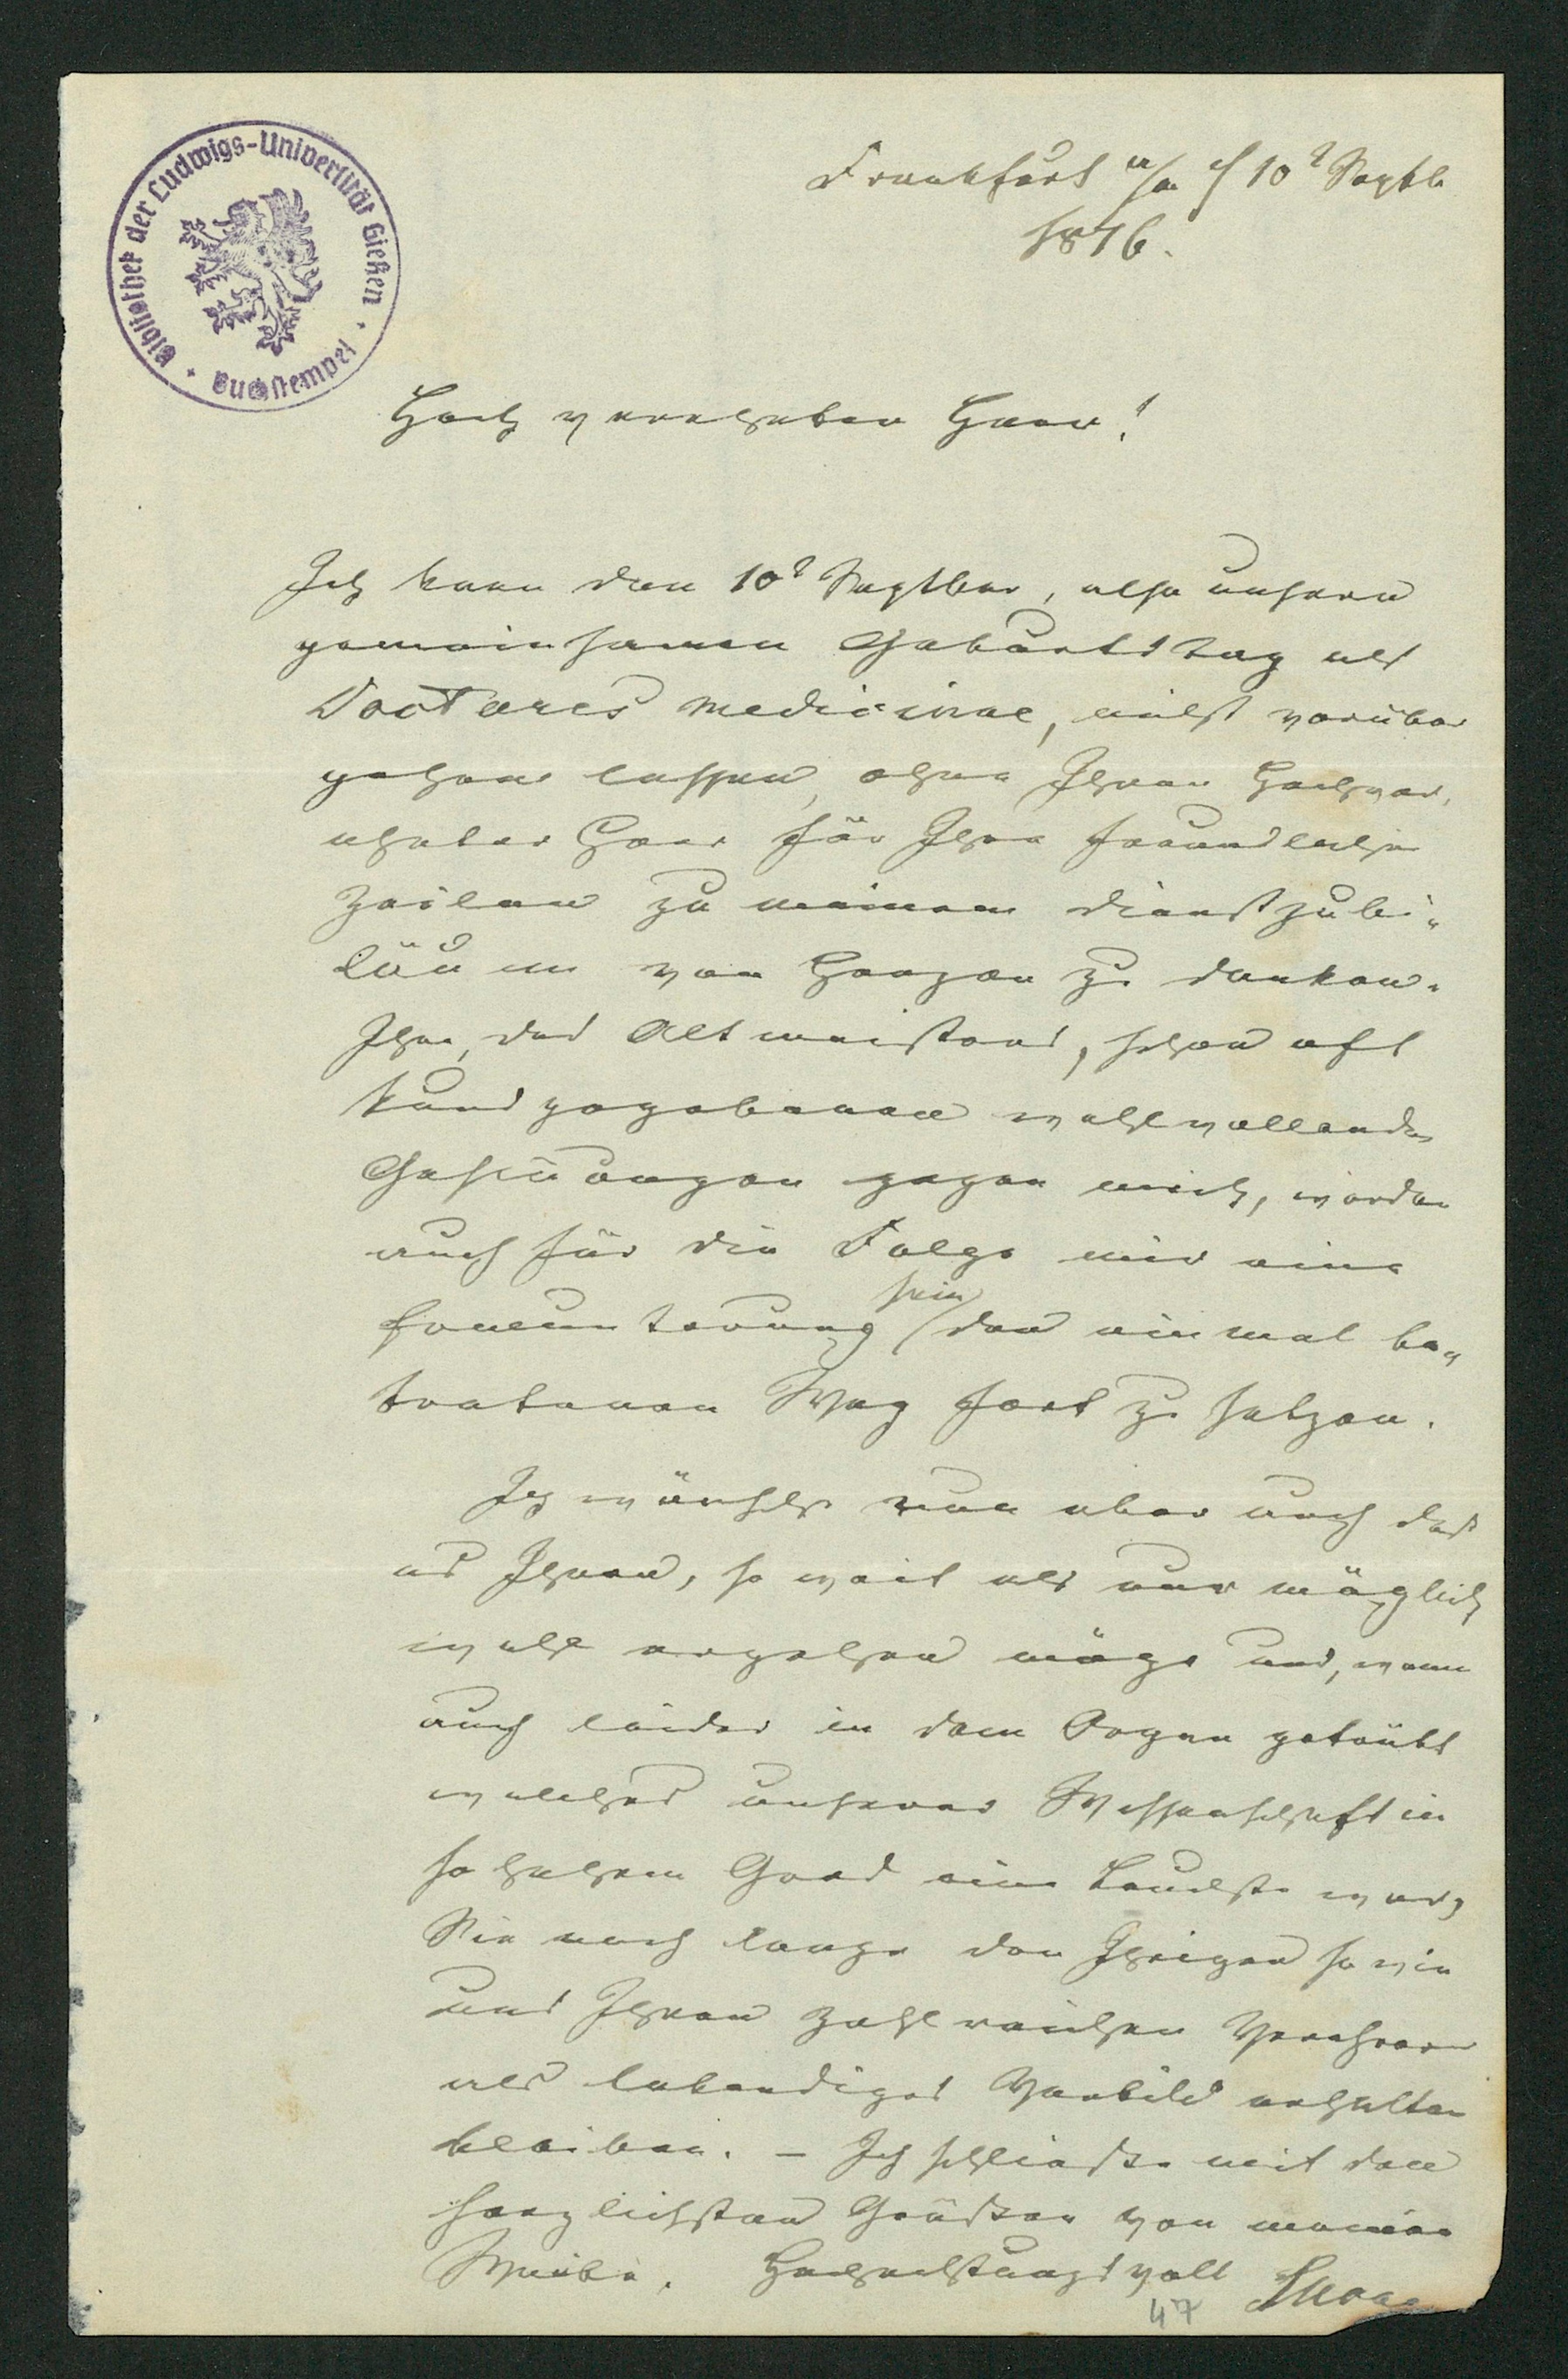 Bibliothek der Ludwigs-Universität Gießen
Buchstempel
Frankfurt a/m d 10t Septb
1876.
Hoch verehrter Herr!
Ich kann den 10t Septber, also unsern
gemeinsamen Geburtstag als
Doctores medicinae, nicht vorüber
gehen lassen, ohne Ihnen hochver,
ehrter Herr für Ihre freundlichen
Zeilen zu meinem Dienstjubi-
läum von Herzen zu danken.
Ihre, des Altmeisters, schon oft
kund gegebenen wohlwollenden
Gesinnungen gegen mich, werden
auch für die Folge mir eine
Ermunterung sein den einmal be-
tretenen Weg fort zu setzen.
Ich wünsche nun aber auch daß
es Ihnen, so weit als nur möglich
wohl ergehen möge und, wenn
auch leider in dem Organ getrübt
welches unserer Wissenschaft in
so hohem Grad eine Leuchte war,
Sie noch lange den Ihrigen so wie
uns Ihren zahlreichen Verehrern
als lebendiges Vorbild erhalten
bleiben. – Ich schließe mit den
herzlichsten Grüßen von meinem
Weibe. Hochachtungsvoll
47